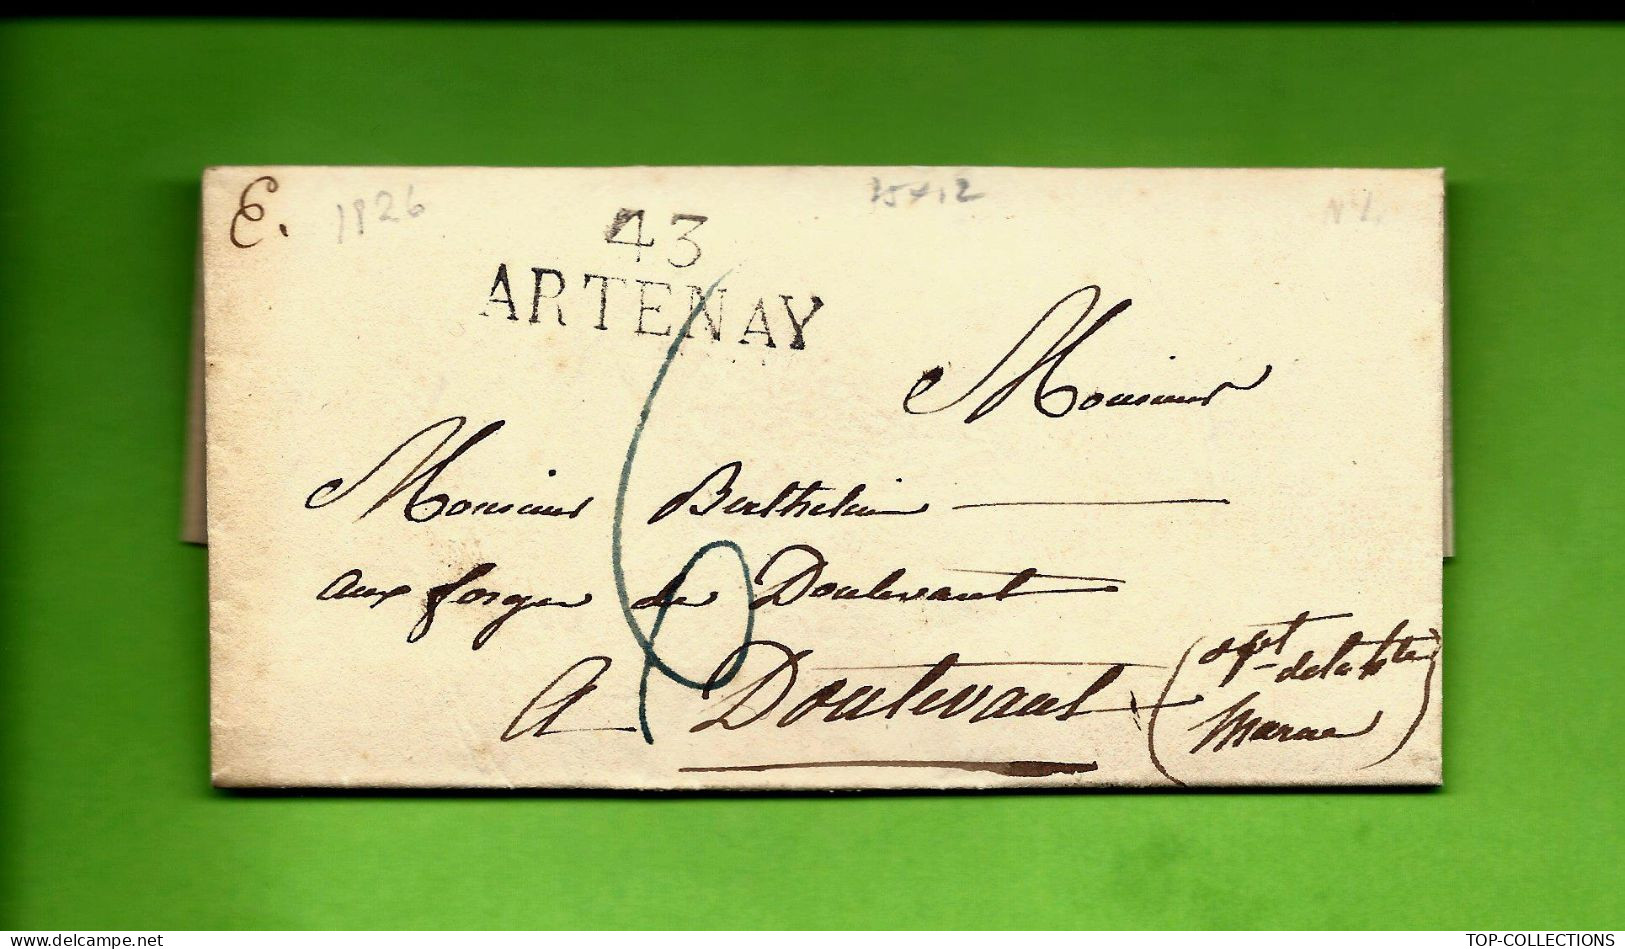 E.
1826
35 x 12
43
ARTENAY
6
Monsieur
Monsieur Berthelin
aux forges de Doulevant
A Doulevant (dpt de la hte
Marne)
TOP-COLLECTIONS